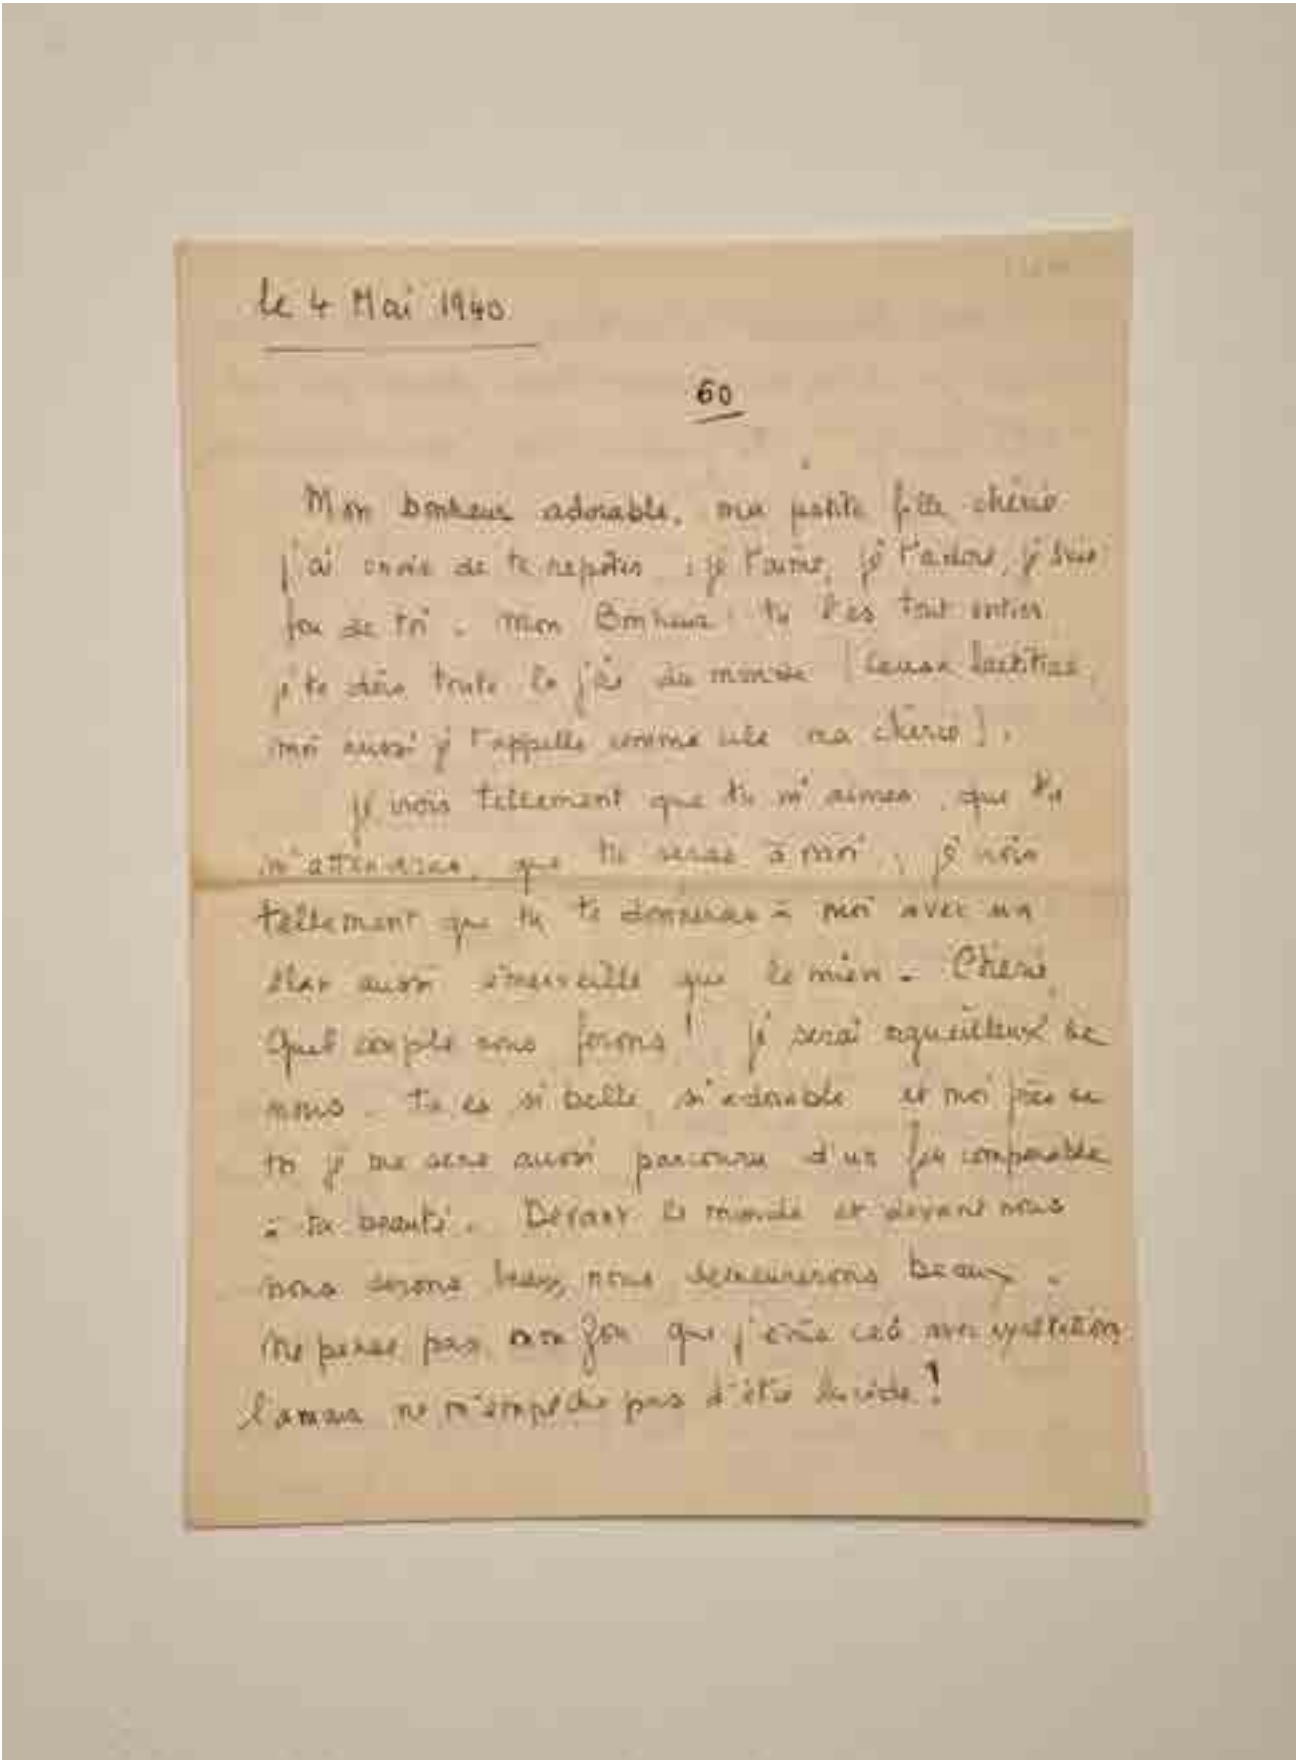 le 4 Mai 1940
60
Mon bonheur adorable, ma petite fille chérie
j'ai envie de te répéter : je t'aime, je t'adore, je suis
fou de toi. Mon Bonheur tu l'es tout entier
je te dois toute la joie du monde (Causa laetitiae,
moi aussi je t'appelle comme cela ma chérie).
je crois tellement que tu m'aimes, que tu
m'attendras, que tu seras à moi, je crois
tellement que tu te donneras à moi avec un
élan aussi émerveillé que le mien. Chérie,
Quel couple nous ferons! je serai orgueilleux de
nous. Tu es si belle, si adorable et moi près de
toi je me sens aussi parcouru d'un feu comparable
à ta beauté. Devant le monde et devant nous
nous serons beaux, nous demeurerons beaux.
Ne pense pas, que j'écris cela avec
l'amour ne m'empêche pas d'être lucide!